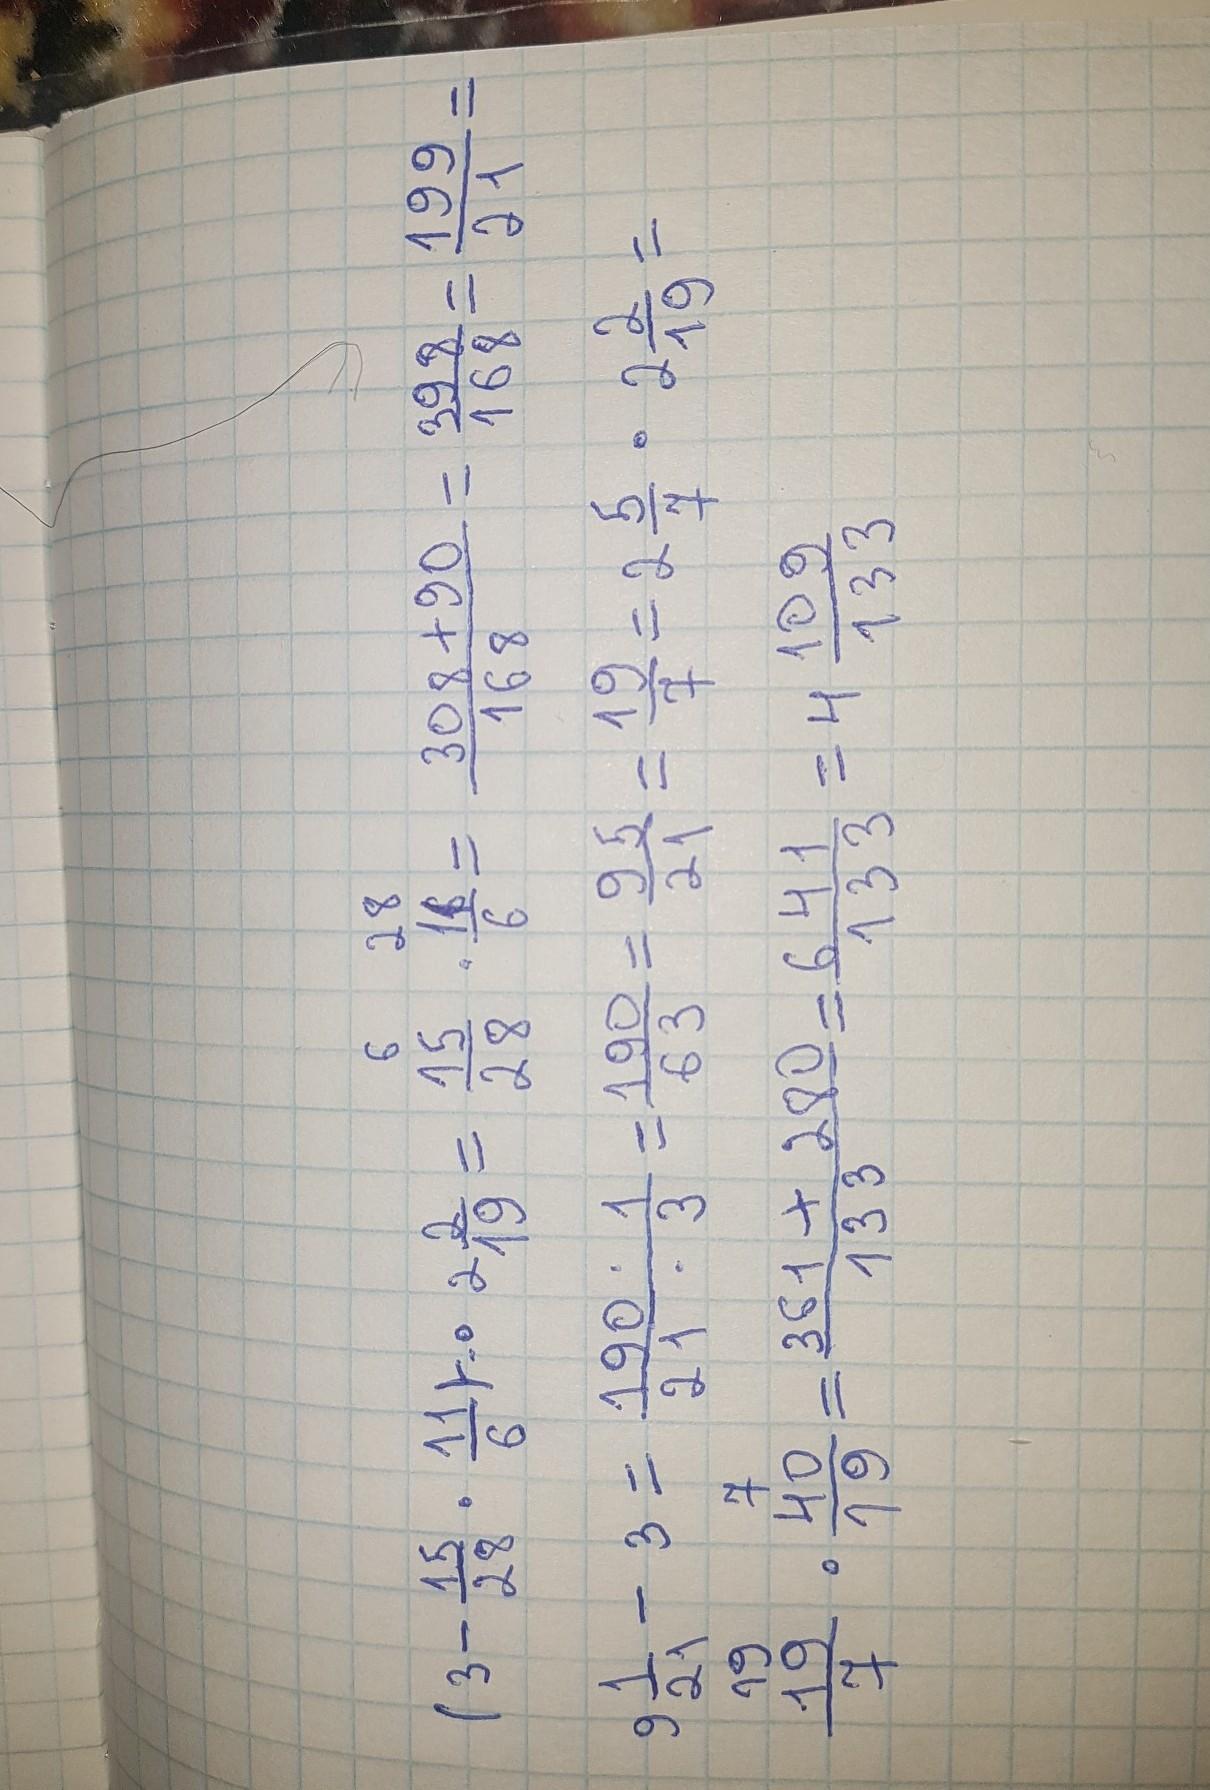 (3 - 15/28 · 11/6) · 2 2/19 = 15/28 · 11/6 = 308+90/168 = 398/168 = 199/21 =
9 1/21 - 3 = 190 · 1/21 · 3 = 190/63 = 95/21 = 19/7 = 2 5/7 · 2 2/19 =
19/7 · 40/19 = 361 + 280/133 = 6 41/133 = 4 109/133